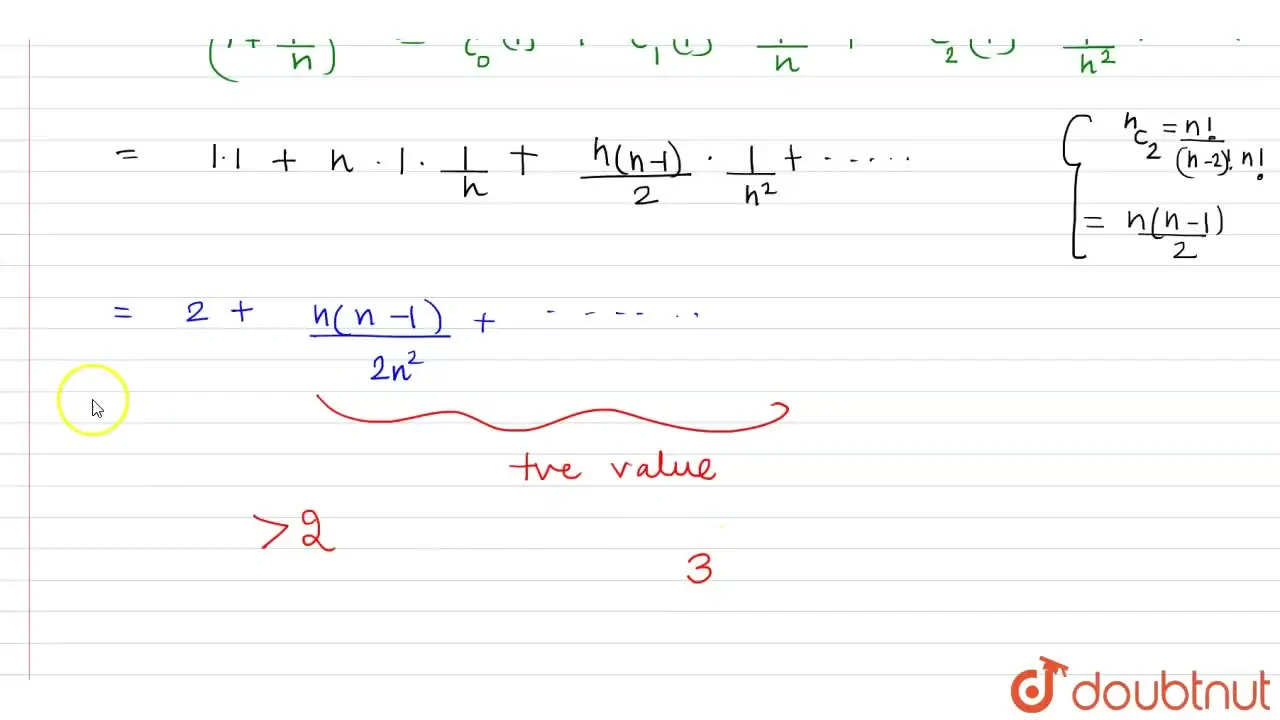 (1 + 1/n) = C₀(1) + C₁(1) 1/n + C₂(1) 1/n² .
= 1·1 + n · 1 · 1/n + n(n-1)/2 · 1/n² + ·····
ⁿC₂ = n!/(n-2)! n!
= n(n-1)/2
= 2 + n(n-1)/2n² + ······
+ve value
>2
3
doubtnut